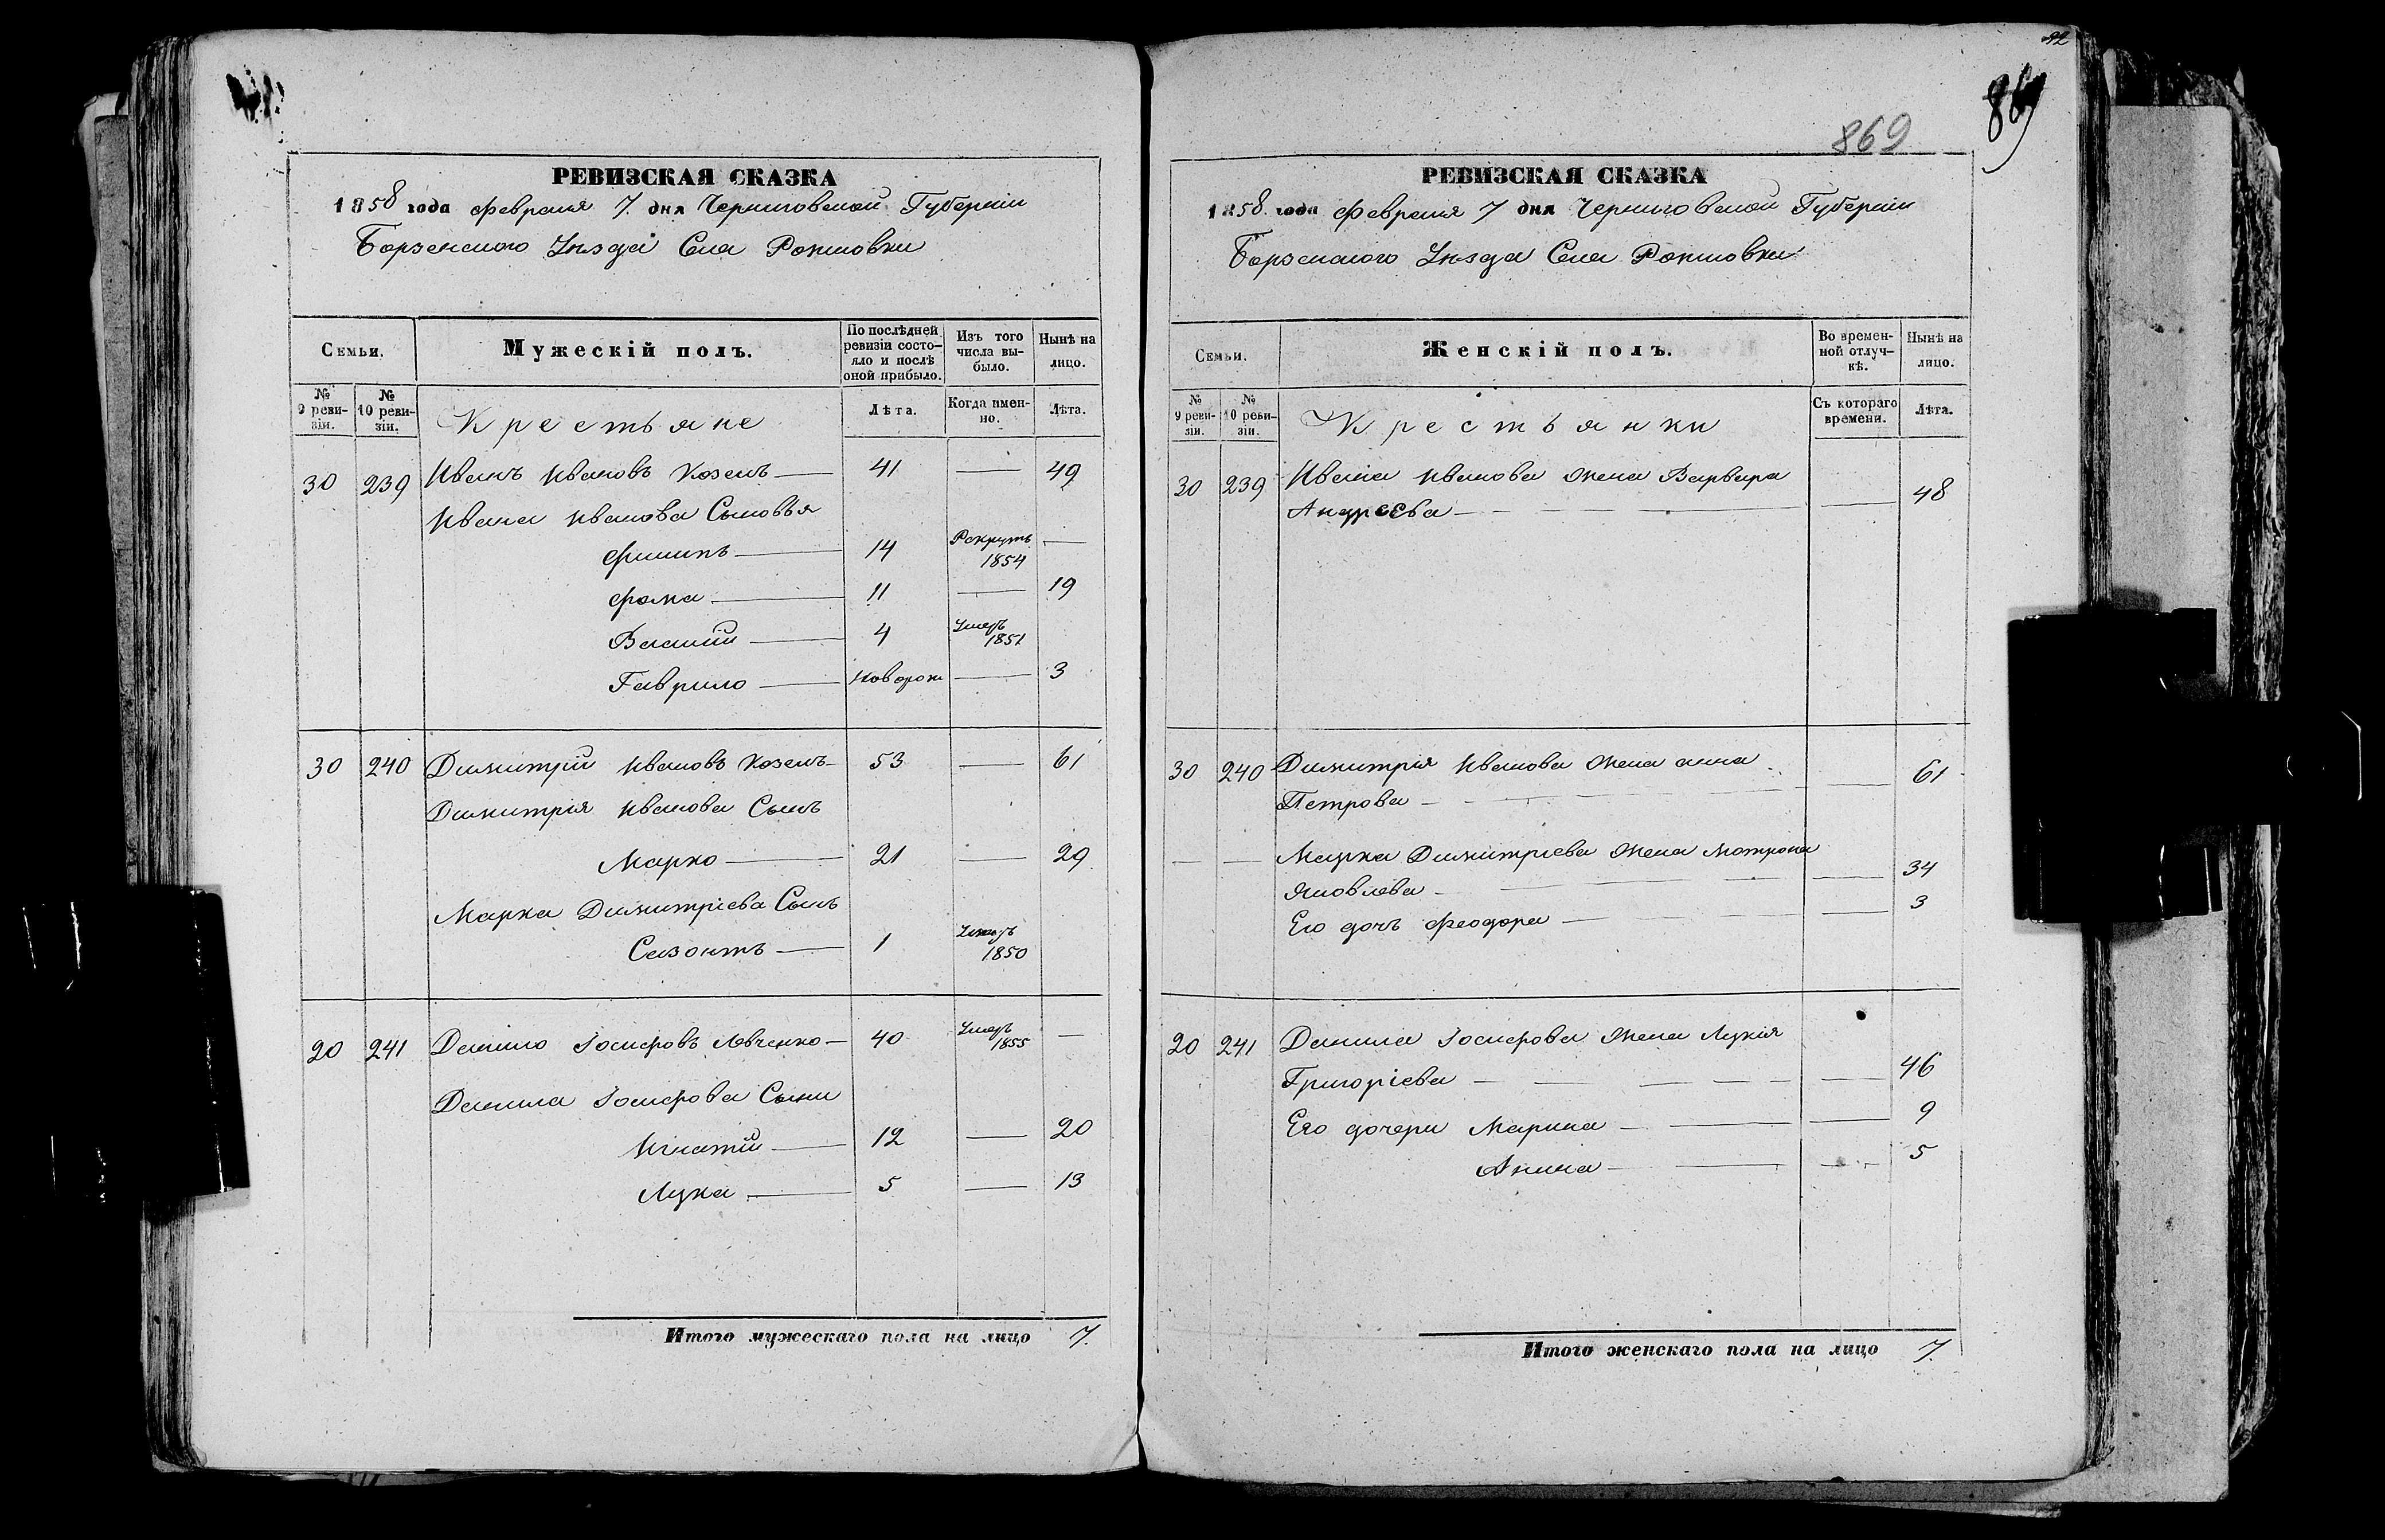 РЕВИЗСКАЯ СКАЗКА
1858 года февраля 7. дня Черниговской Губерніи
Борзенского Уѣзда Села
Семьи.
Мужескій полъ.
По послѣдней ревизіи состо-
яло и послѣ
оной прибыло.
Изъ того
числа вы-
было.
Нынѣ на
лицо.
№ 9 реви-
зіи.
№ 10 реви-
зіи.
Крестьяне
Лѣта.
Когда имен-
но.
Лѣта.
30 239 Иванъ Ивановъ Козелъ 41 49
Ивана Иванова Сыновья
Филипъ 14 Рекрутъ 1854
Фома 11 19
Василій 4 Умеръ 1851
Гаврило новорож 3
30 240 Димитрій Ивановъ Козелъ 53 61
Димитрія Иванова Сынъ
Марко 21 29
Марка Димитріева Сынъ
Сазонтъ 1 Умеръ 1850
20 241 Данило Іосифовъ Левченко 40 Умеръ 1855
Данила Іосифова Сыни
Игнатій 12 20
Лука 5 13
Итого мужескаго пола на лицо 7.
92
869
869
РЕВИЗСКАЯ СКАЗКА
1858. года февраля 7 дня Черниговской Губерніи
Борзенского Уѣзда Села
Семьи.
Женскій полъ.
Во времен-
ной отлуч-
кѣ.
Нынѣ на
лицо.
№ 9 реви-
зіи.
№ 10 реви-
зіи.
Крестьянки
Съ котораго
времени.
Лѣта.
30 239 Ивана Иванова Жена Варвара
Андреева 48
30 240 Димитрія Иванова Жена Анна
Петрова 61
Марка Димитріева Жена Мотрона
Яковлева 34
Его дочь Феодора 3
20 241 Данила Іосифова Жена Лукія
Григоріева 46
Его дочери Марина 9
Анина 5
Итого женскаго пола на лицо 7.